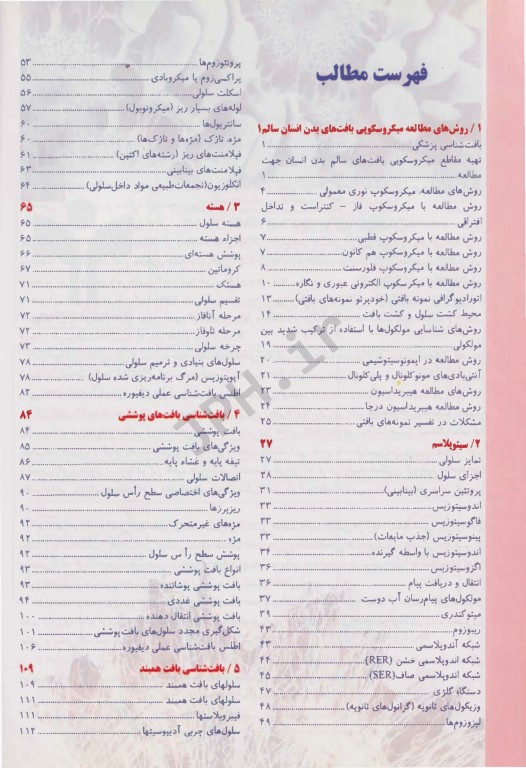 فهرست مطالب
۱ / روش‌های مطالعه میکروسکوپی بافت‌های بدن انسان سالم ۱
بافت‌شناسی پزشکی ۱
تهیه مقاطع میکروسکوپی بافت‌های سالم بدن انسان جهت
مطالعه ۱
روش‌های مطالعه، میکروسکوپ نوری معمولی ۴
روش مطالعه با میکروسکوپ فاز – کنتراست و تداخل
افتراقی ۶
روش مطالعه با میکروسکوپ قطبی ۷
روش مطالعه با میکروسکوپ هم کانون ۷
روش مطالعه با میکروسکوپ فلورسنت ۸
روش مطالعه با میکروسکوپ الکترونی عبوری و نگاره ۱۰
اتورادیوگرافی نمونه بافتی (خودپرتو نمونه‌های بافتی) ۱۳
محیط کشت سلول و کشت بافت ۱۴
روش‌های شناسایی مولکول‌ها با استفاده از ترکیب شدید بین
مولکولی ۱۹
روش مطالعه در ایمونوسیتوشیمی ۲۰
آنتی‌بادی‌های مونوکلونال و پلی‌کلونال ۲۱
روش‌های مطالعه هیبریداسیون ۲۳
روش مطالعه هیبریداسیون درجا ۲۴
مشکلات در تفسیر نمونه‌های بافتی ۲۵
۲/ سیتوپلاسم ۲۷
تمایز سلولی ۲۷
اجزای سلول ۲۸
پروتئین سراسری (بینابینی) ۳۱
اندوسیتوزیس ۳۳
فاگوسیتوزیس ۳۳
پینوسیتوزیس (جذب مایعات) ۳۳
اندوسیتوزیس با واسطه گیرنده ۳۴
اگزوسیتوزیس ۳۶
انتقال و دریافت پیام ۳۶
مولکول‌های پیام‌رسان آب دوست ۳۷
میتوکندری ۳۹
ریبوزوم ۴۳
شبکه آندوپلاسمی ۴۳
شبکه اندوپلاسمی خشن (RER) ۴۴
شبکه اندوپلاسمی صاف (SER) ۴۵
دستگاه گلژی ۴۷
وزیکول‌های ثانویه (گرانول‌های ثانویه) ۴۸
لیزوزوم‌ها ۴۹
پروتئوزوم‌ها ۵۳
پراکسی‌زوم یا میکروبادی ۵۵
اسکلت سلولی ۵۶
لوله‌های بسیار ریز (میکروتوبول) ۵۷
سانتریول‌ها ۶۰
مژه، تاژک (مژه‌ها و تاژک‌ها) ۶۰
فیلامنت‌های ریز (رشته‌های اکتین) ۶۱
فیلامنت‌های بینابینی ۶۳
انکلوزیون (تجمعات طبیعی مواد داخل‌سلولی) ۶۴
۳ / هسته ۶۵
هسته سلول ۶۵
اجزاء هسته ۶۵
پوشش هسته‌ای ۶۶
کروماتین ۶۷
هستک ۷۱
تقسیم سلولی ۷۱
مرحله آنافاز ۷۲
مرحله تلوفاز ۷۲
چرخه سلولی ۷۳
سلول‌های بنیادی و ترمیم سلولی ۷۸
آپوپتوزیس (مرگ برنامه‌ریزی شده سلول) ۷۸
اطلس بافت‌شناسی عملی دیفیوره ۸۲
۴ / بافت‌شناسی بافت‌های پوششی ۸۴
بافت پوششی ۸۴
ویژگی‌های بافت پوششی ۸۵
تیغه پایه و غشاء پایه ۸۶
اتصالات سلولی ۸۷
ویژگی‌های اختصاصی سطح رأس سلول ۹۰
ریزپرزها ۹۰
مژه‌های غیرمتحرک ۹۲
مژه ۹۲
پوشش سطح رأ س سلول ۹۲
انواع بافت پوششی ۹۳
بافت پوششی پوشاننده ۹۳
بافت پوششی غددی ۹۴
بافت پوششی انتقال دهنده ۱۰۰
شکل‌گیری مجدد سلول‌های بافت پوششی ۱۰۱
اطلس بافت‌شناسی عملی دیفیوره ۱۰۶
۵ / بافت‌شناسی بافت همبند ۱۰۹
سلولهای بافت همبند ۱۰۹
سلولهای بافت همبند ۱۱۱
فیبروبلاستها ۱۱۱
سلول‌های چربی آدیپوسیتها ۱۱۲
JPH.ir